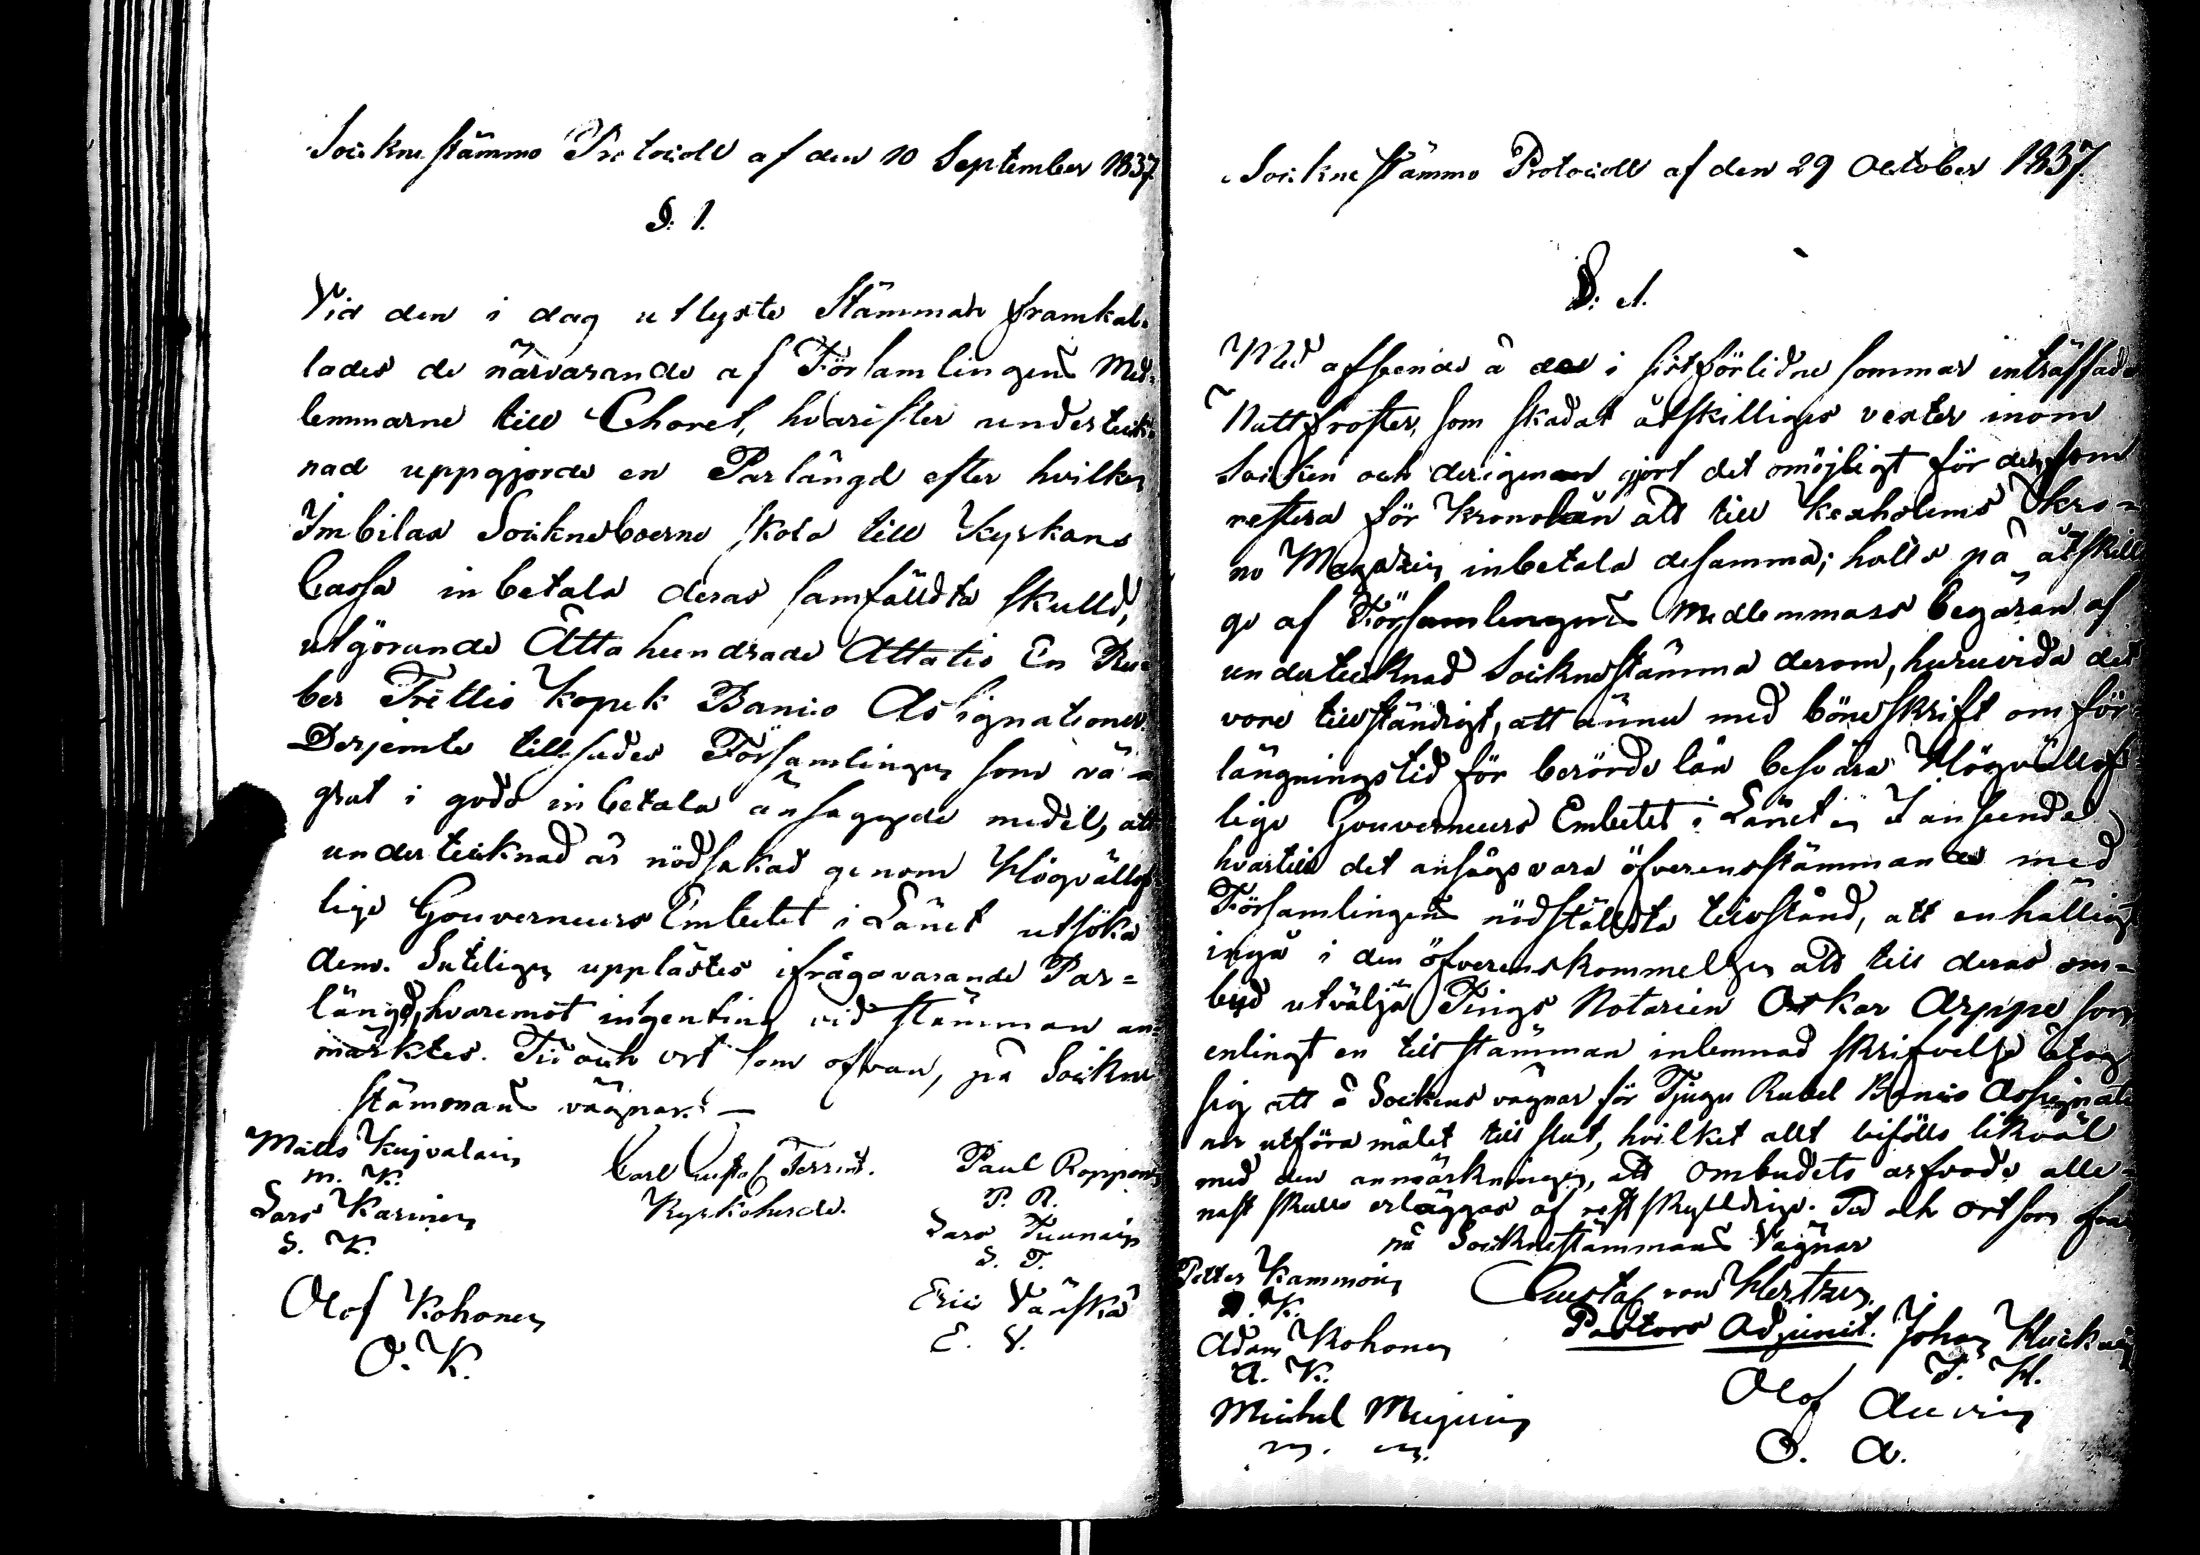 Sockne stämmo Protocoll af den 10 September 1837
§. 1.
Vid den i dag utlyste Stämman framkal-
lades de närvarande af Församlingens Med-
lemmarne till Choret, hvarefter underteck-
nad uppgjorde en Parlängd efter hvilken
Imbilax Sockneboerne skola till Kyrkans
Cassa inbetala deras samfälldta skulld,
utgörande Åtta hundrade Åttatio En Ru-
bel Trettio Kopek Banco Assignationer.
Derjemte tillsades Församlingen som vä-
grat i godo inbetala ansagde medel, att
undertecknad är nödsakad genom Högvällof-
lige Gouverneurs Embetet i Länet utsöka
dem. Suteligen upplästes ifrågavarande Par=
längd, hvaremot ingenting vid stämman an-
märktes. Tid och ort som ofvan, på Sockne
stämmans vägnar. —
Matts Kujvalain
M. K.
Carl Gustaf Terrin.
Kyrkoherde.
Paul Ropponen
P. R.
Lars Karinen
S. K.
Lars Tuunain
S. T.
Olof Kohonen
O. K.
Eric Vänskä
E. V.
Sockne stämmo Protocoll af den 29 October 1837.
§. 1.
Med afseende å de i sistförlidne sommar inträffade
Nattfroster, som skadat åtskilliges vexter inom
Socken och derigenom gjort det omöjligt för dem som
restera för Kronolån att till Kexholms Kro-
no Magazin inbetala desamma; holls på åtskilli
ge af Församlingens Medlemmars begäran af
undertecknad Socknestämma derom, huruvida det
vore tillständigt, att ännu med böneskrift om för-
längningstid för berörde lån besvära Högvällof-
lige Gouverneurs Embetet i Länet; I anseende
hvartill det ansågs vara öfverensstämmande med
Församlingens nödställdta tillstånd, att enhälligt
ingå i den öfverenskommelsen att till deras om-
bud utvälja Tings Notarien Oskar Arppe som
enlingt en till stämman inlemnad skrifvelse åtog
sig att å Sockens vägnar för Tjugu Rubel Banco Assignatio
ner utföra målet till slut, hvilket allt bifölls likväl
med den anmärkningen, att ombudets arfvode alle-
nast skulle erläggas af restskylldige. Tid och ort som ofvan
på Socknestämmans Vägnar
Petter Kammoin
P. K.
Gustaf von Hertzen.
Pastors Adjunct.
Adam Kohonen
A. K.
Johan Huckain
J. H.
Michel Mujunin
M. M.
Olof Auvin
O. A.